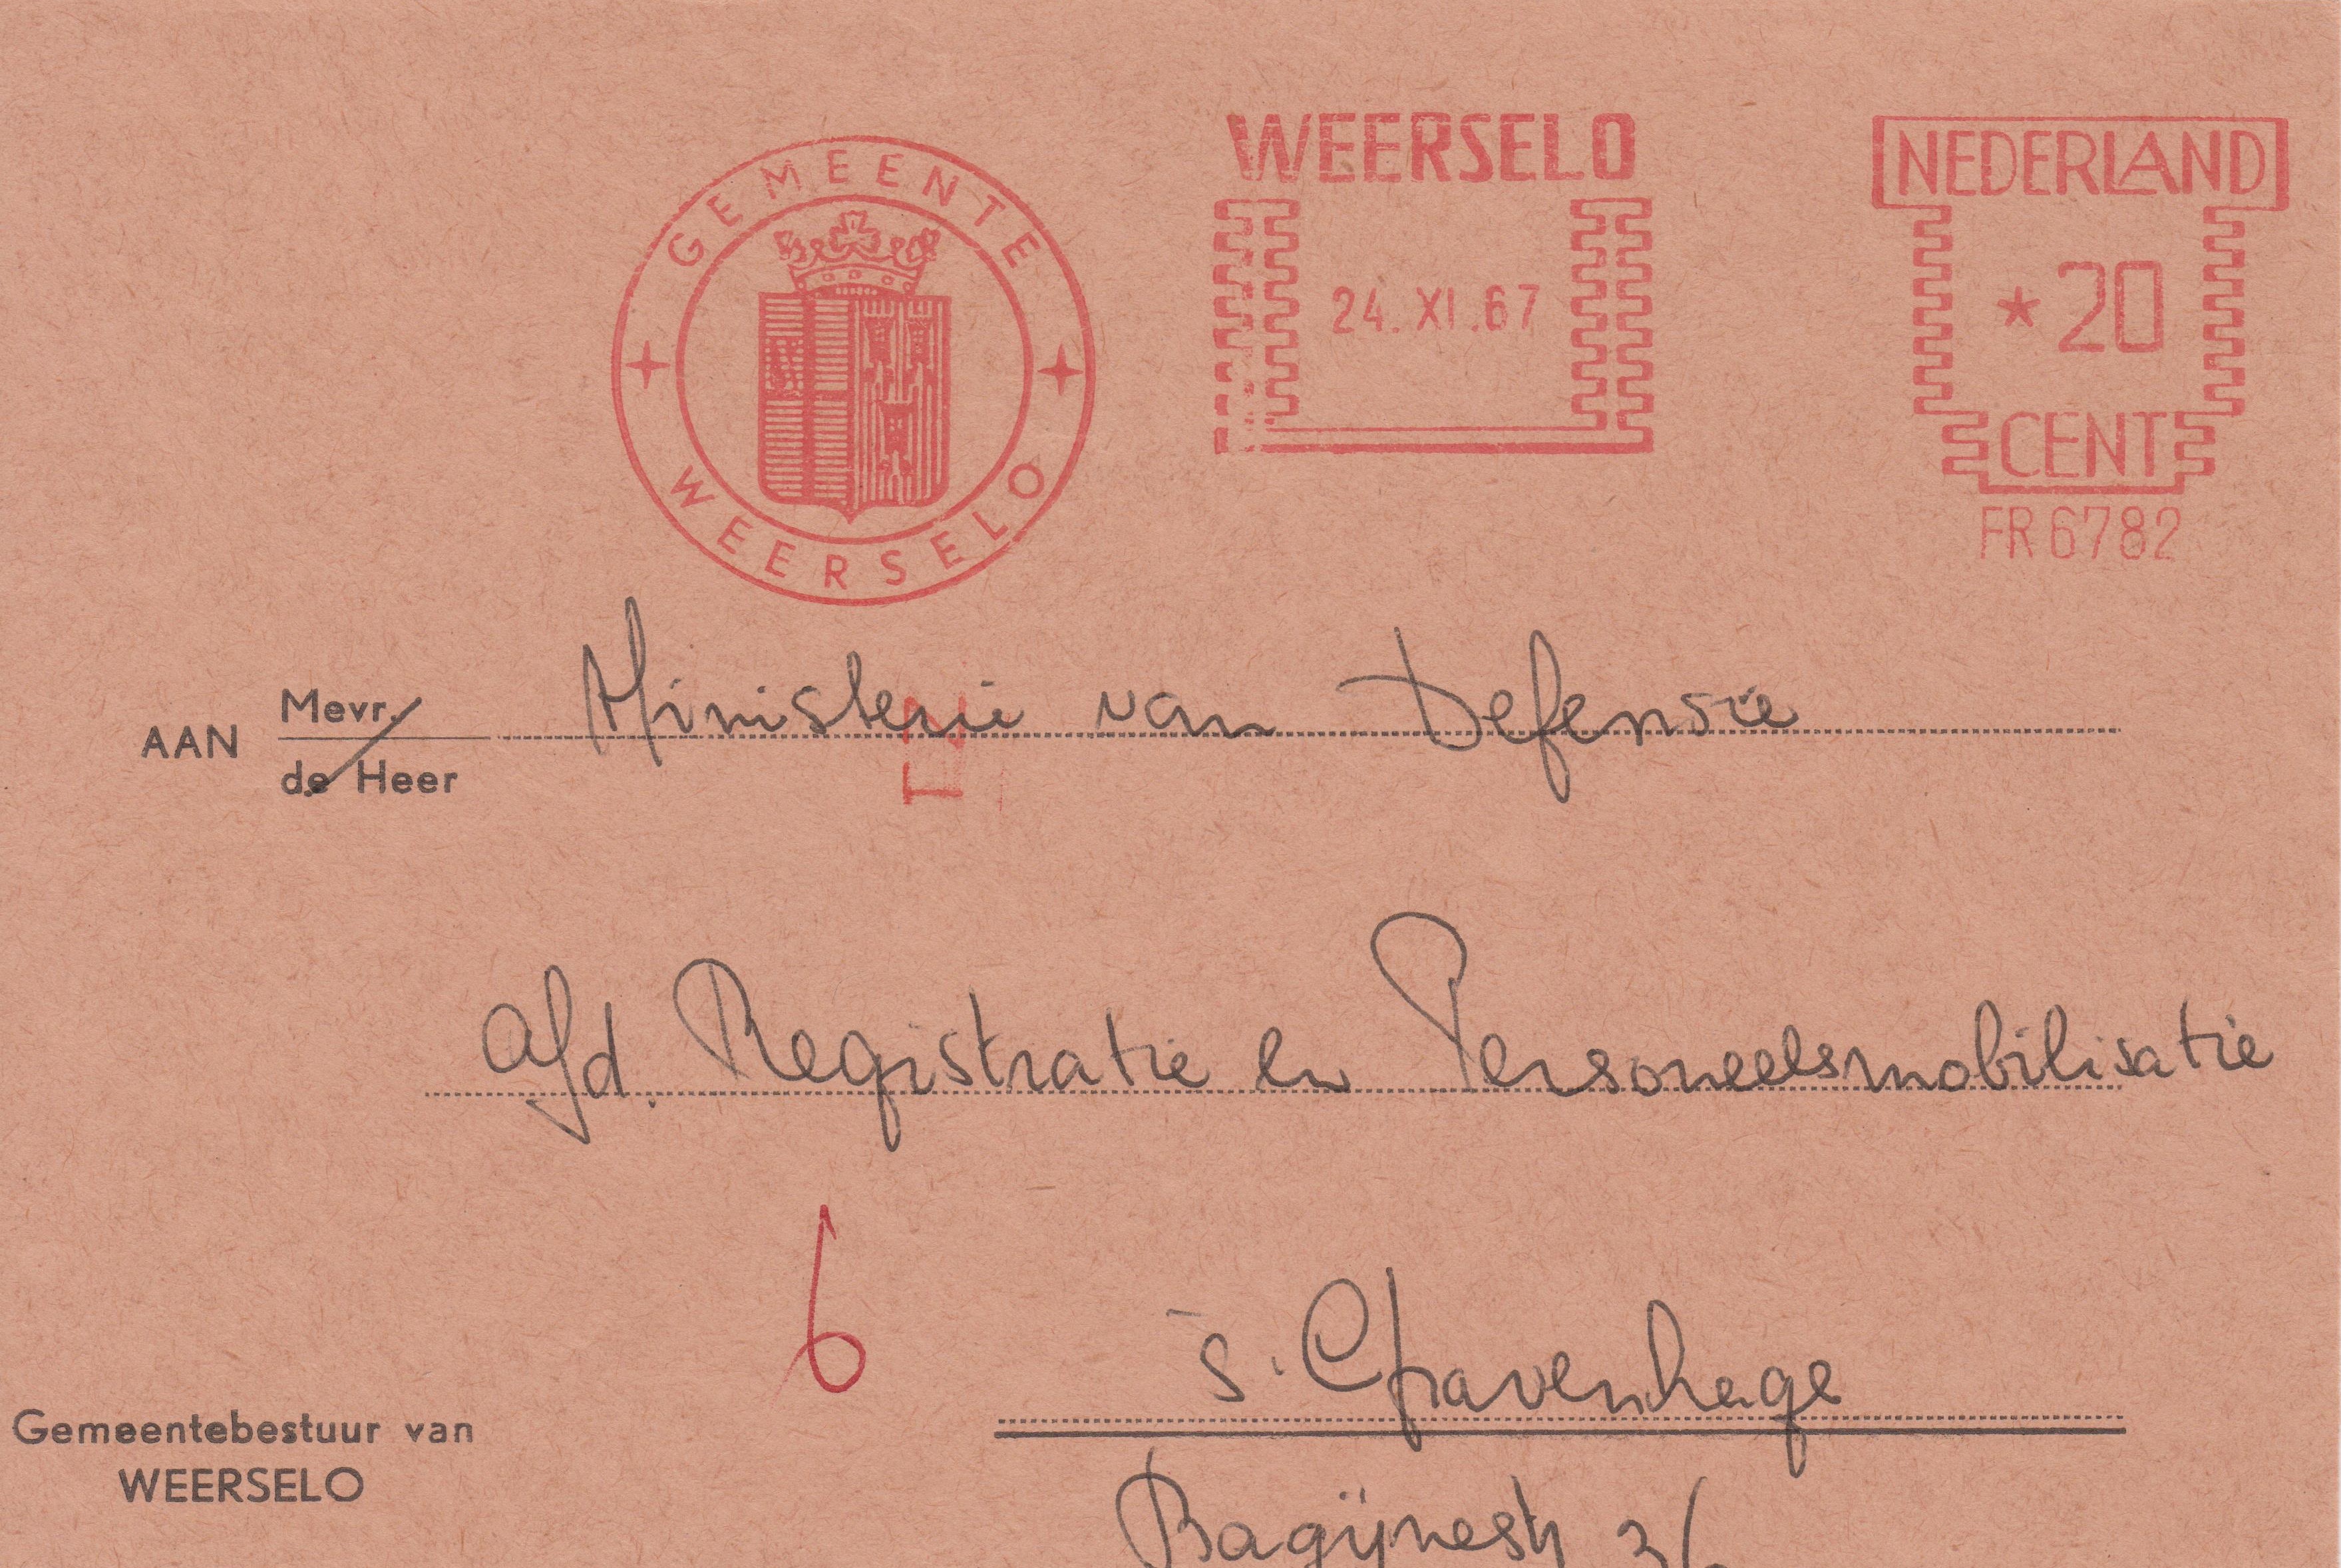 GEMEENTE
WEERSELO
WEERSELO
24. XI. 67
NEDERLAND
* 20
CENT
FR 6782
AAN Mevr.
de Heer
Ministerie van Defensie
afd. Registratie en Personeelsmobilisatie
6
's. Gravenhage
Gemeentebestuur van
WEERSELO
Bagijnestr